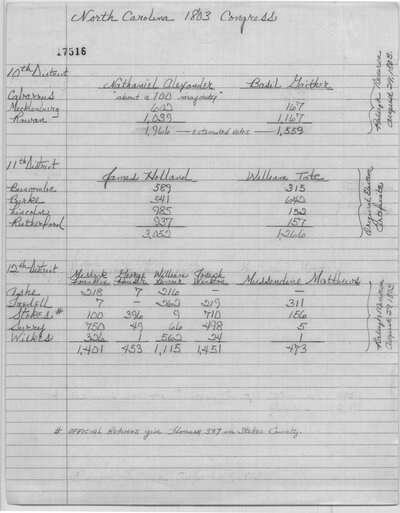 North Carolina 1803 Congress
17516
10th District
Nathaniel Alexander Basil Gaither
Cabarrus "about a 700 majority"
Mecklenburg 602 167
Rowan 1,039 1,167
1,966 — Estimated Votes — 1,559
Raleigh Minerva
August 29, 1803.
11th District
James Holland William Tate
Buncombe 589 315
Burke 541 642
Lincoln 985 152
Rutherford 937 157
3,052 1,266
Original Election
Certificates
12th District
Meshack Franklin George Houser William Lenoir Joseph Winston Mussendine Matthews
Ashe 218 7 216 – –
Iredell 7 – 262 219 311
Stokes # 100 396 9 710 156
Surry 750 49 66 498 5
Wilkes 326 1 562 24 1
1,401 453 1,115 1,451 473
Raleigh Minerva
August 29, 1803
# OFFICIAL RETURNS give Houser 397 in Stokes County.